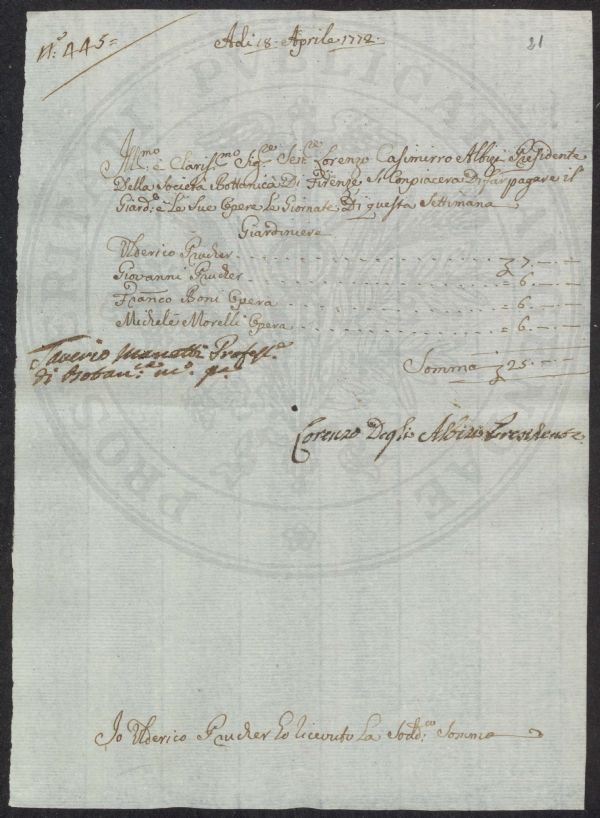 N.º 445=
Adi 18. Aprile 1772.
21
Ill.mo e Claris.mo Sig.re Sen.re Lorenzo Casimirro Albizi Presidente
Della Società Bottanica Di Firenze Si Conpiacera Di far pagare il
Giard.e e Le Sue Opere Le Giornate Di questa Settimana
Giardiniere
Ulderico Prucher 7.—.—
Giovanni Prucher = 6.—.—
Franco Boni Opera = 6.—.—
Michele Morelli Opera = 6.—.—
Saverio Manetti Profess.e
di Botan.ca m.º p.a
Somma 25.—.—
Lorenzo Degli Albizi Presidente
Io Ulderico Prucher ho ricevuto La Sodd.co Somma
PROSPERITATI PVBLICAE